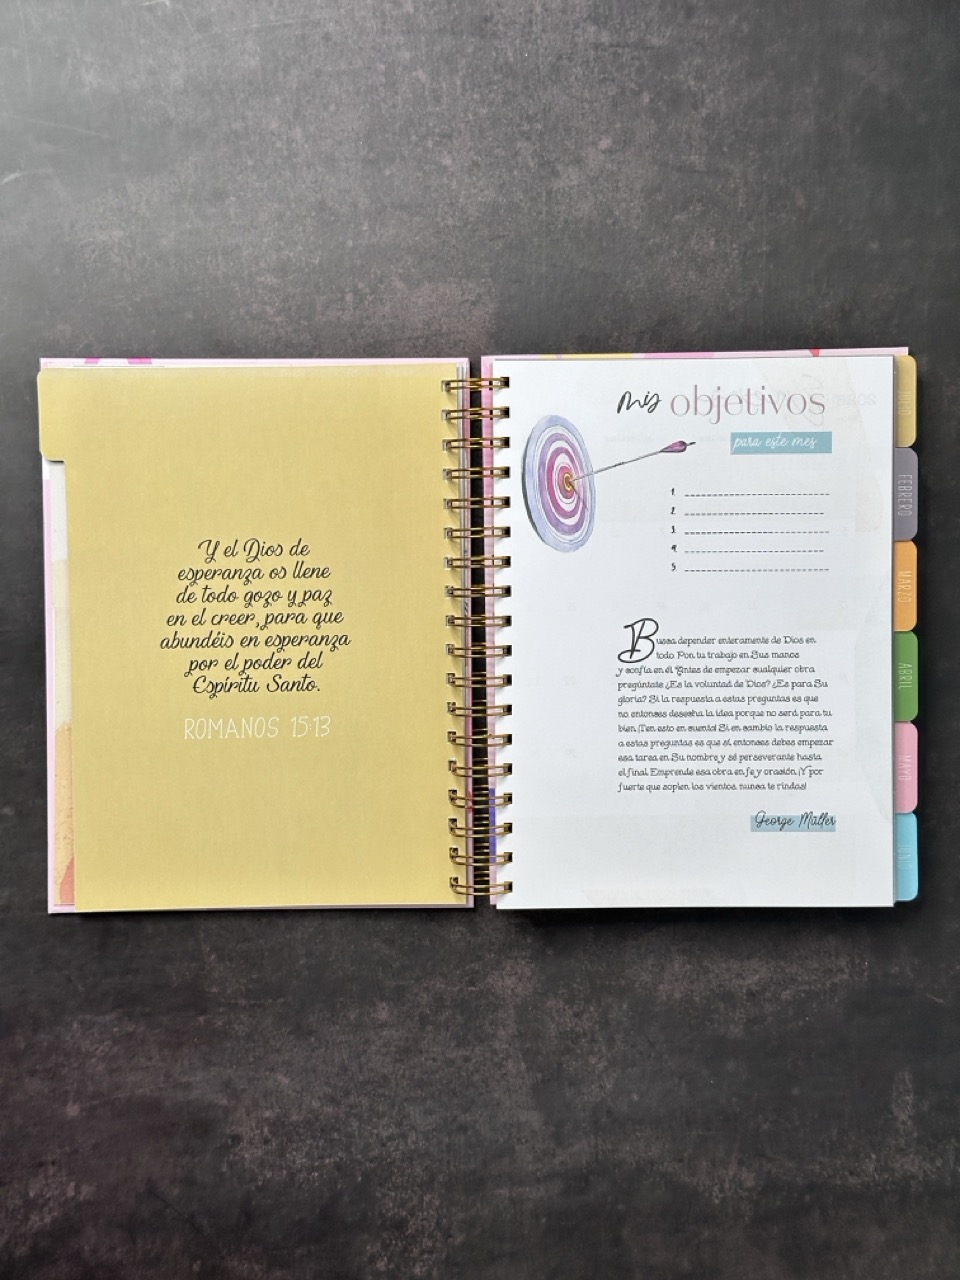 Y el Dios de
esperanza os llene
de todo gozo y paz
en el creer, para que
abundéis en esperanza
por el poder del
Espíritu Santo.
ROMANOS 15:13
mis objetivos
para este mes
1.
2.
3.
4.
5.
Busca depender enteramente de Dios en
todo. Pon tu trabajo en Sus manos
y confía en él. Antes de empezar cualquier obra
pregúntate ¿Es la voluntad de Dios? ¿Es para Su
gloria? Si la respuesta a estas preguntas es que
no, entonces desecha la idea porque no será para tu
bien. ¡Ten esto en cuenta! Si en cambio la respuesta
a estas preguntas es que sí, entonces debes empezar
esa tarea en Su nombre, y sé perseverante hasta
el final. Emprende esa obra en fe y oración. ¡Y por
fuerte que soplen los vientos, nunca te rindas!
George Müller
FEBRERO
MARZO
ABRIL
MAYO